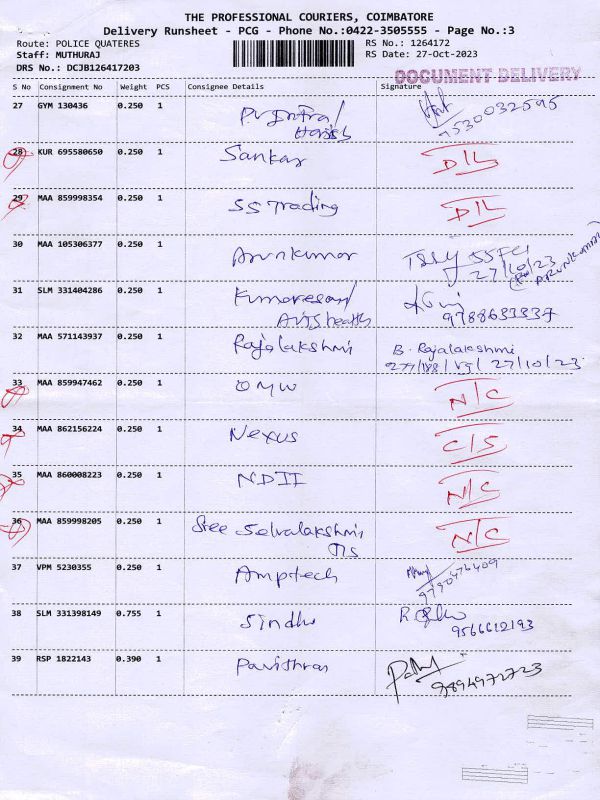 THE PROFESSIONAL COURIERS, COIMBATORE
Delivery Runsheet - PCG - Phone No.:0422-3505555 - Page No.:3
Route: POLICE QUATERES RS No.: 1264172
Staff: MUTHURAJ RS Date: 27-Oct-2023
DRS No.: DCJB126417203
DOCUMENT DELIVERY
S No Consignment No Weight PCS Consignee Details Signature
27 GYM 130436 0.250 1
7530032595
28 KUR 695580650 0.250 1 Sankar D/L
29 MAA 859998354 0.250 1 SS Trading D/L
30 MAA 105306377 0.250 1 Arunkumar
27/10/23
ARUNKUMAR
31 SLM 331404286 0.250 1 Kumaresan/
health 9788633337
32 MAA 571143937 0.250 1 Rajalakshmi B. Rajalakshmi
27/10/23
33 MAA 859947462 0.250 1 OMW N/C
34 MAA 862156224 0.250 1 Nexus C/S
35 MAA 860008223 0.250 1 NDII N/C
36 MAA 859998205 0.250 1 Sree Selvalakshmi N/C
37 VPM 5230355 0.250 1 Amptech
9790476409
38 SLM 331398149 0.755 1 Sindhu
9566612193
39 RSP 1822143 0.390 1 Pavithran
9894972723